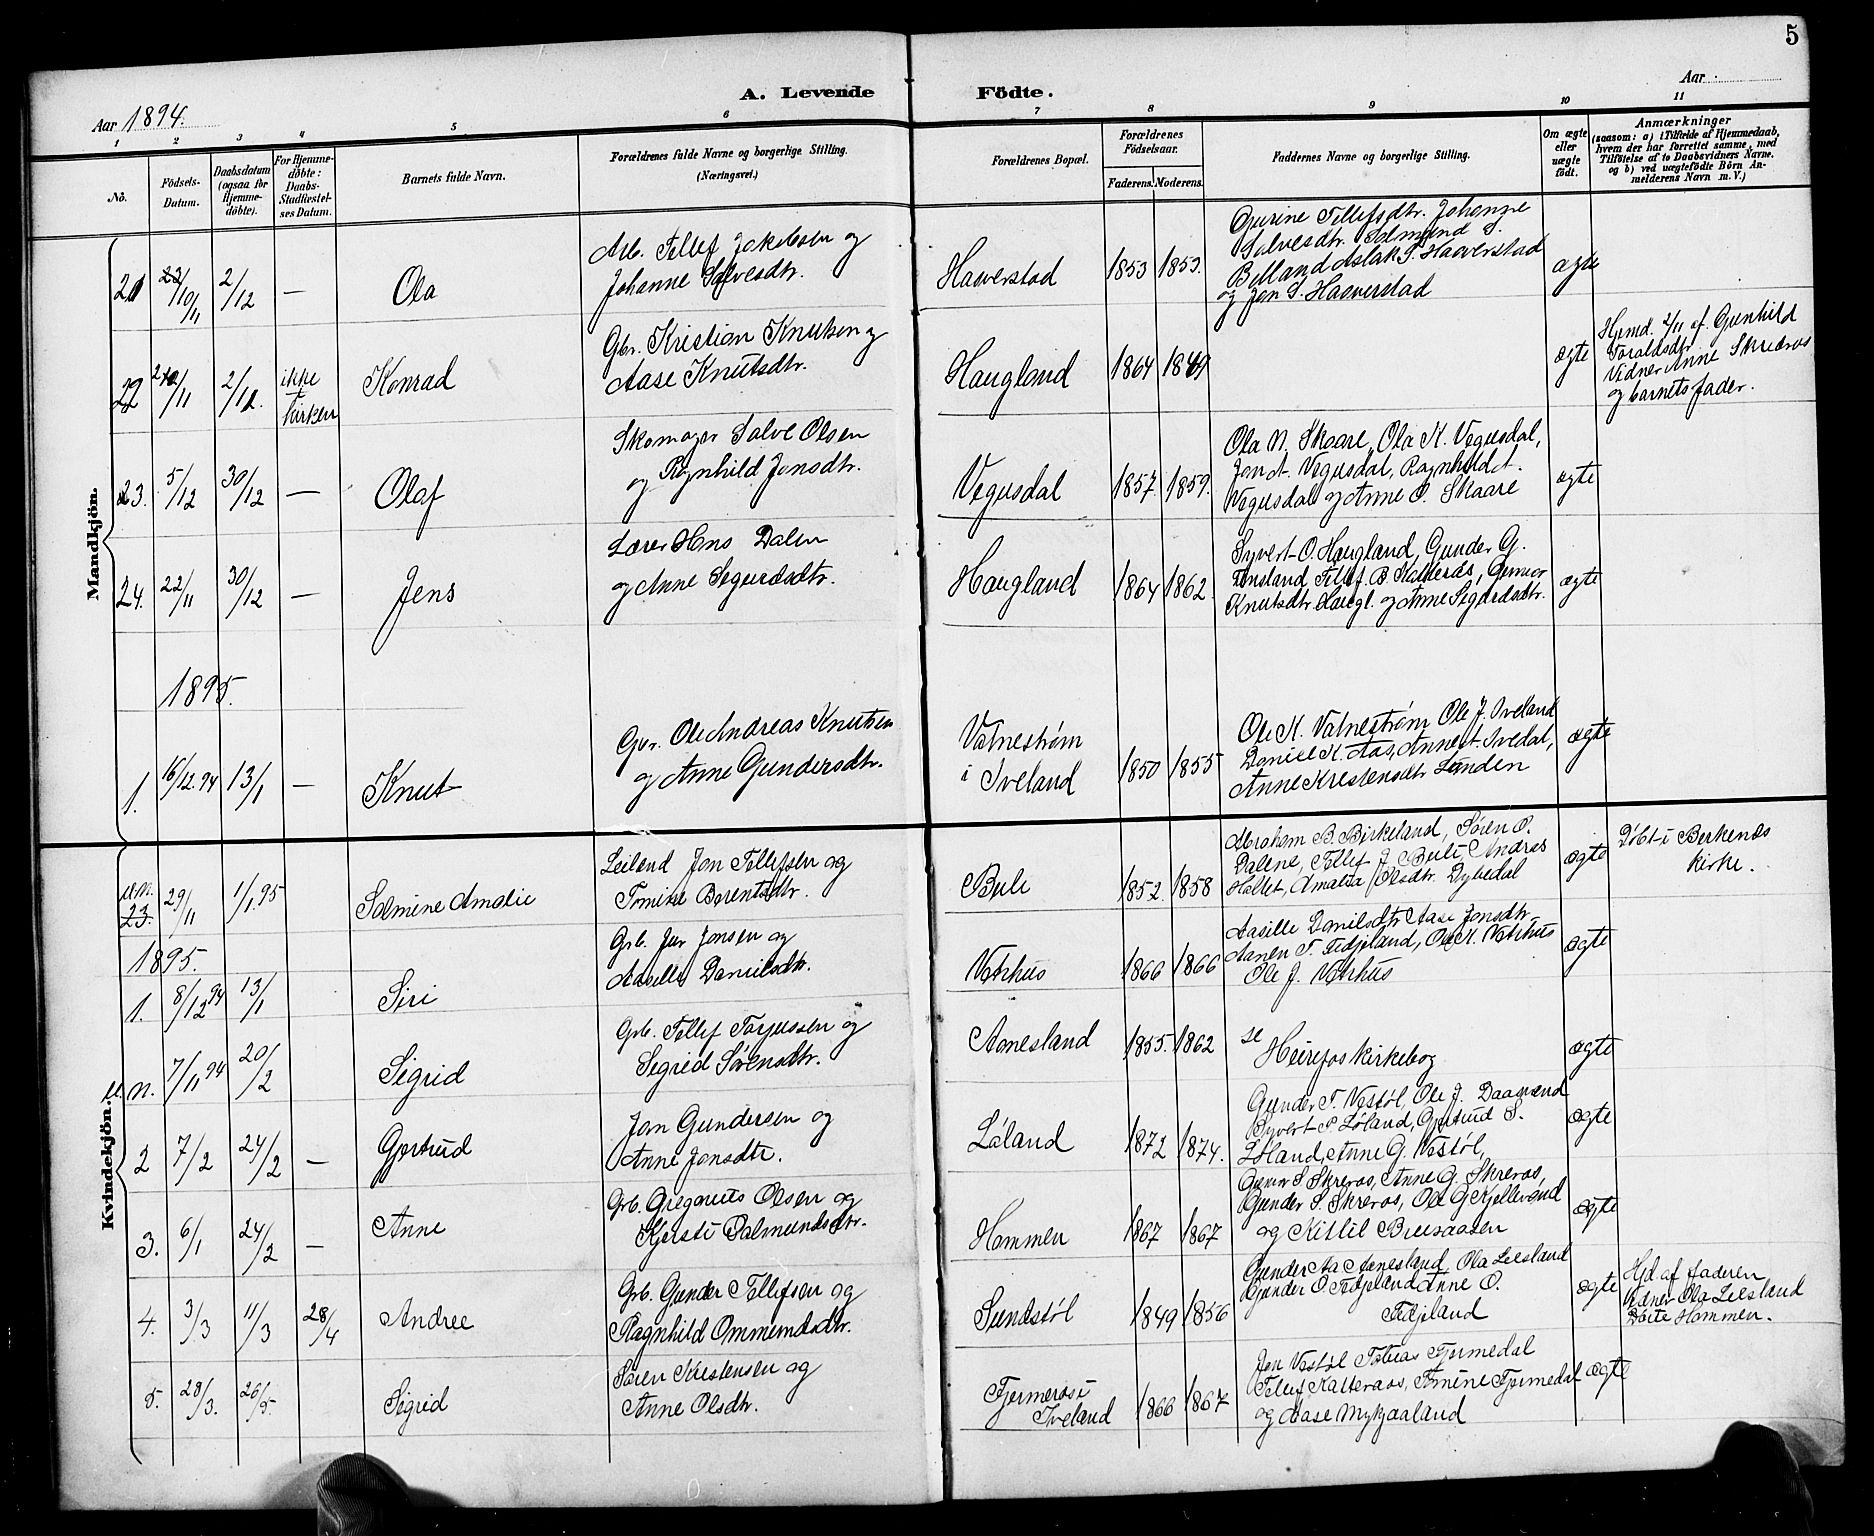 5
Aar 1894.
A. Levende Födte.
Aar
1 2 3 4 5 6 7 8 9 10 11
No.
Födsels-
Datum.
Daabsdatum
(ogsaa for
Hjemme-
döbte).
For Hjemme-
döbte:
Daabs-
Stadfæstel-
ses Datum.
Barnets fulde Navn.
Forældrenes fulde Navne og borgerlige Stilling.
(Næringsvei.)
Forældrenes Bopæl.
Forældrenes
Födselsaar.
Faderens. Moderens.
Faddernes Navne og borgerlige Stilling.
Om ægte
eller
uægte
födt.
Anmærkninger
(saasom: a) i Tilfælde af Hjemmedaab,
hvem der har forrettet samme, med
Tilföielse af to Daabsvidners Navne.
og b) ved uægtefödte Börn An-
melderens Navn m. V.)
Mandkjön.
21 10/11 2/12 — Ola
Arb. Tellef Jakobsen og
Johanne Salvesdtr.
Haaverstad 1853 1853.
Gurine Tellefsdtr. Johanne
Salvesdtr. Salmund S.
Birkeland Aslak T. Haaverstad
og Jon S. Haaverstad
ægte
22 2/11 2/12. ikke i kirken Konrad
Gbr. Kristian Knutsen og
Aase Knutsdtr.
Haugland 1864 1849
ægte
Hjmd. 2/11 af Gunhild
Toraldsdtr
Vidner Anne Skreros
og barnets fader.
23. 5/12 30/12 — Olaf
Skomager Salve Olsen
og Ragnhild Jonsdtr.
Vegusdal 1857 1859.
Ola N. Skaare, Ola K. Vegusdal,
Jon A. Vegusdal, Ragnhild A.
Vegusdal og Anne O. Skaare
ægte
24. 22/11 30/12 — Jens
Lærer Hans Dalen
og Anne Sigurdsdtr.
Haugland 1864 1862.
Syvert O. Haugland, Gunder G.
Tellef B. Kalteraas, Gunvor
Knutsdtr. Haugl. og Anne Sigurdsdtr.
ægte
1895.
1. 16/12.94 13/1 — Knut
Gbr. Ole Andreas Knutsen
og Anne Gundersdtr.
Vatnestrøm
i Iveland 1850 1855
Ole K. Vatnestrøm Ole J. Iveland
Daniel K. Aas, Anne Ivedal,
Anne Kristensdtr Lunden
ægte
Kvindekjön.
u.N. 23. 29/11 1/1.95 Salmine Amalie
Leilend Jon Tellefsen og
Tomine Berentsdtr.
Beli 1852. 1858
Abraham B. Birkeland, Søren O.
Dalene, Tellef J. Beli Andreas
Hallet, Amalia Olsdtr. Dybedal
ægte
Døbt i Birkenes
kirke.
1895.
1. 8/12 94 13/1 Siri
Grb. Jens Jonsen og
Aasille Danielsdtr.
Vatnhus 1866 1866
Aasille Danielsdtr Aase Jonsdtr.
Aanen T. Fidjeland, Ole K. Vatnhus
Ole J. Vatnhus
ægte
u.n. 7/11 94 20/2 Sigrid
Grb. Tellef Torjussen og
Sigrid Sørensdtr.
Aanesland 1855. 1862
se
Heirefos kirkebog
ægte
2 7/2 24/2 — Gjertrud
Jon Gundersen og
Anne Jonsdtr.
Løland 1872 1874.
Gunder T. Vestøl, Ole J.
Syvert S. Løland, Gjertrud S.
Løland, Anne G. Vestøl,
ægte
3. 6/1 24/2 — Anne
Grb. Gregorius Olsen og
Kjersti Salmundsdtr.
Hommen 1867 1867
Gunvor S Skreros, Anne G. Skreros,
Gunder S. Skreros, Ole G. Kjellevand
og Kittil Bruaasen
ægte
4. 3/3 11/3 28/4 Andree
Grb. Gunder Tellefsen og
Ragnhild Ommundsdtr.
Sundstøl 1849 1856
Gunder Aa Aanesland, Ola Leesland
Gunder O. Fidjeland Anne O.
Fidjeland
ægte
Hjd. af faderen
Vidner Ola Leesland
Dorte Hommen.
5. 28/3. 26/5. Sigrid
Søren Kristensen og
Anne Olsdtr.
Fjermeros i
Iveland 1866 1867
Jon Vestøl Tobias Fjermedal
Tellef Kalteraas, Tomine Fjermedal
og Aase Mykjaaland
ægte